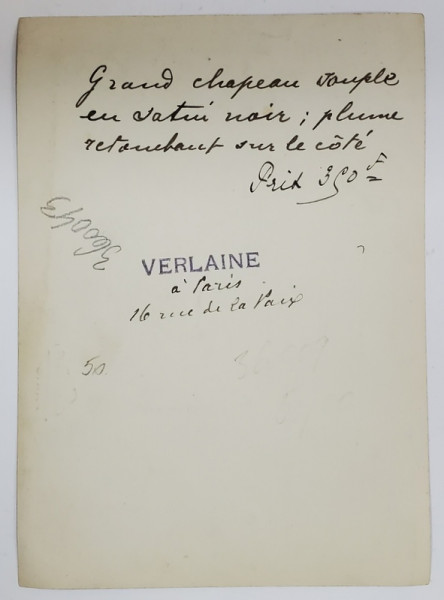 Grand chapeau souple
en satin noir ; plume
retombant sur le côté
Prix 350 F
360043
VERLAINE
à Paris
16 rue de la Paix
50